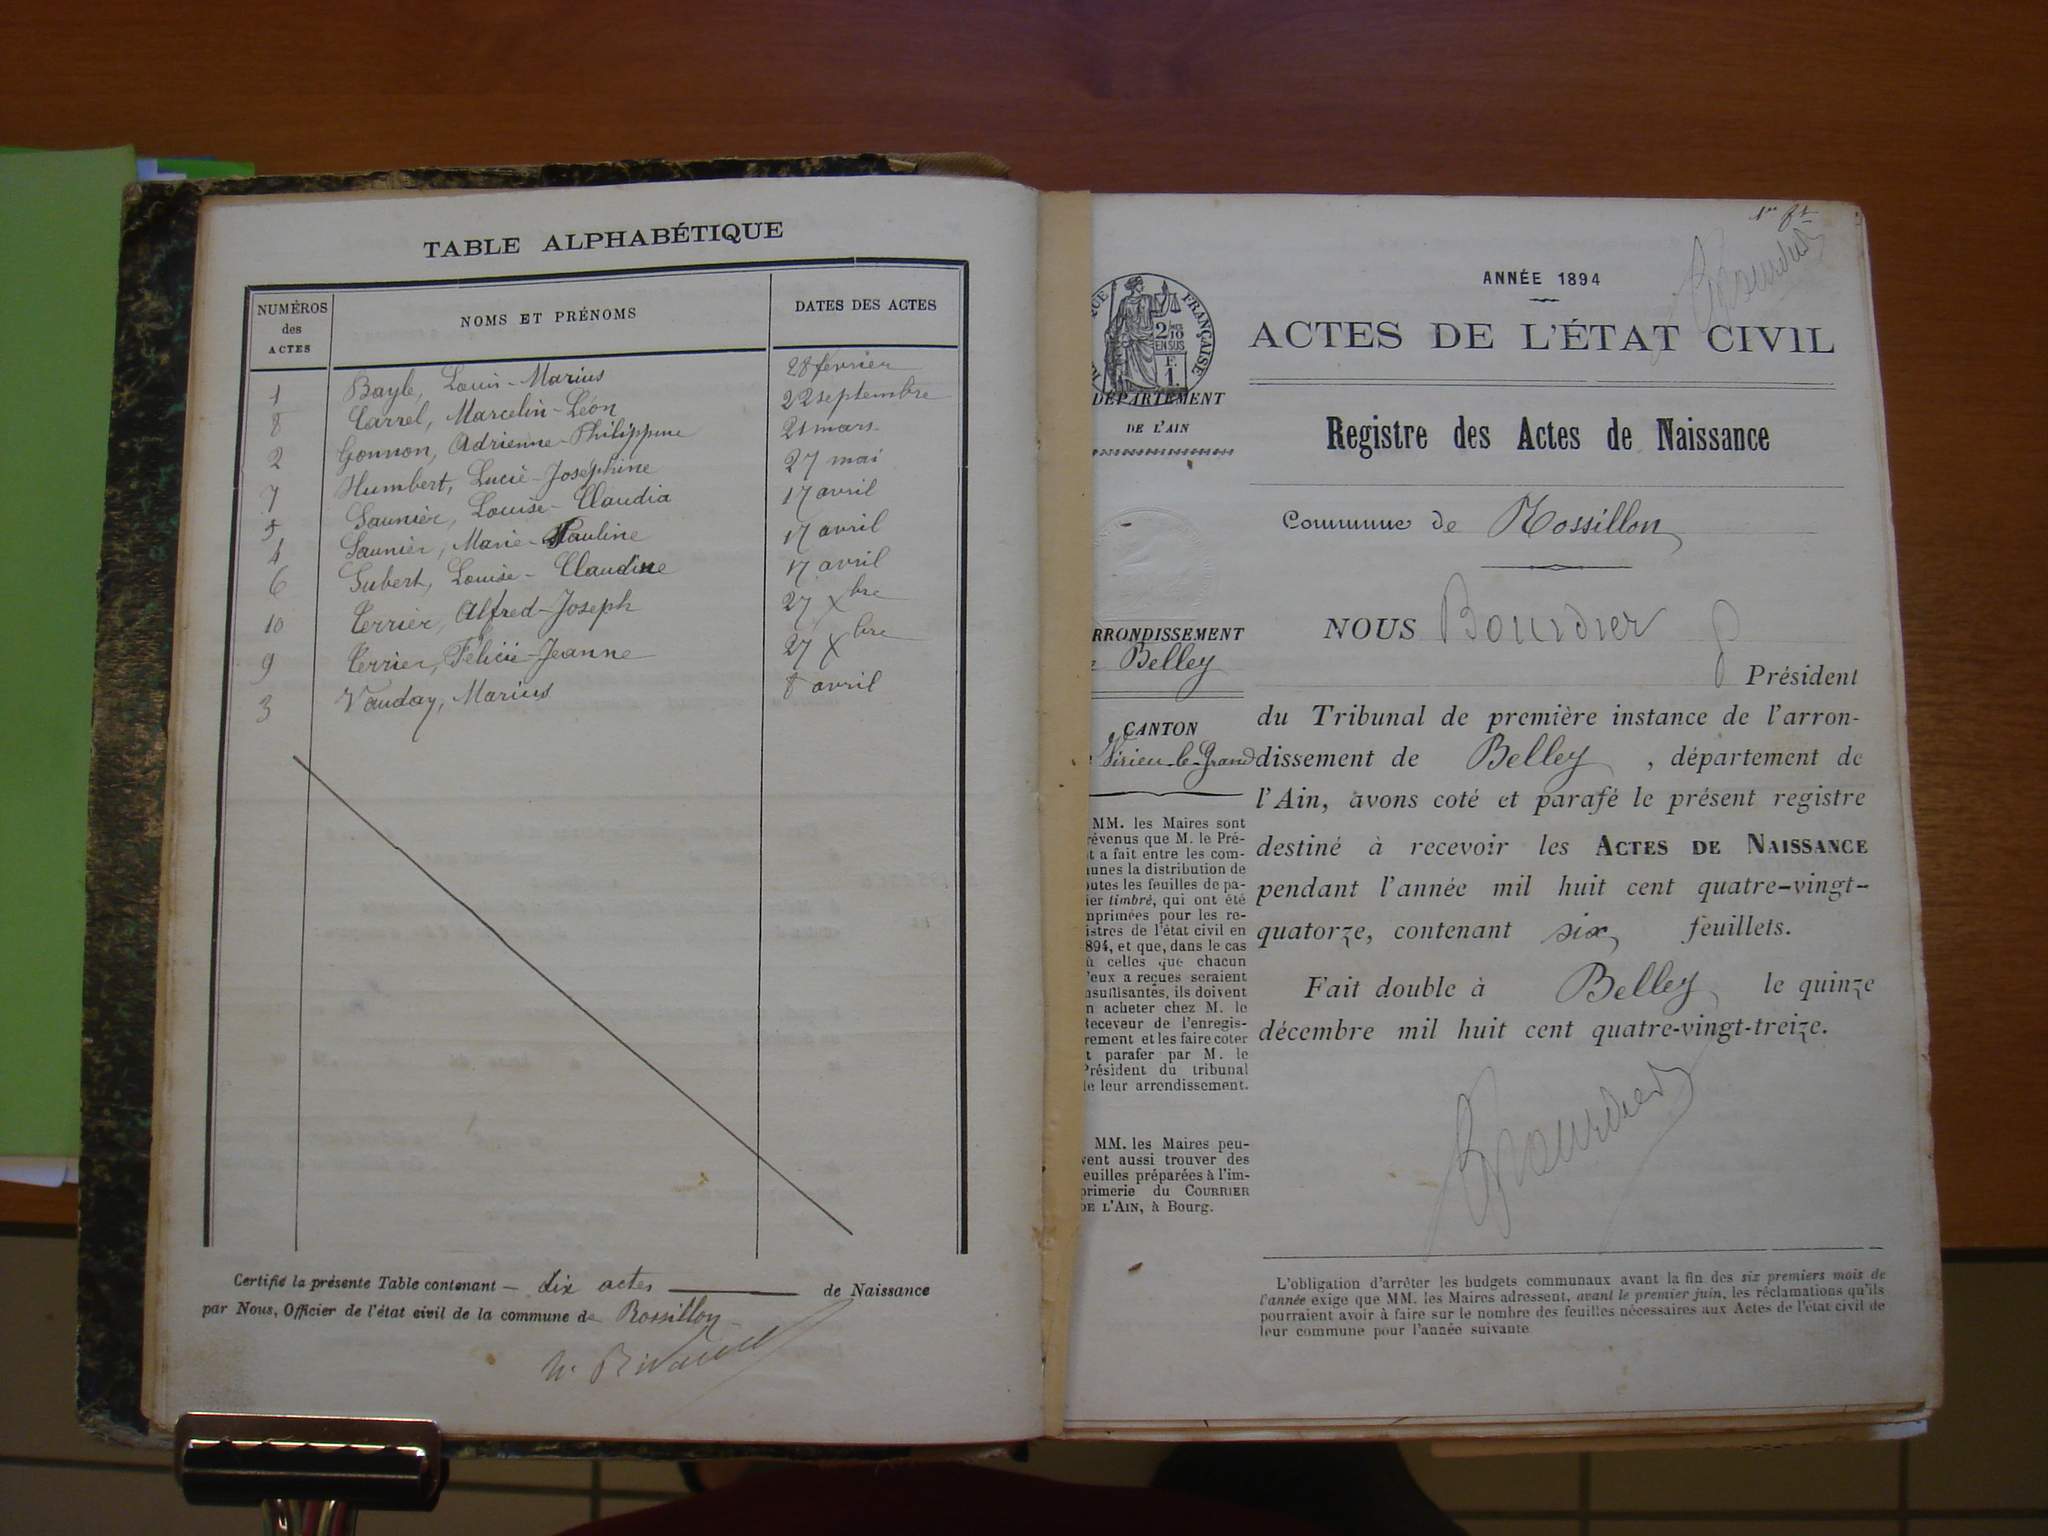 TABLE ALPHABÉTIQUE
NUMÉROS des ACTES NOMS ET PRÉNOMS DATES DES ACTES
1 Bayle, Louis-Marius 28 février
8 Carrel, Marcelin-Léon 22 septembre
2 Gonnon, Adrienne-Philippine 21 mars
7 Humbert, Lucie-Joséphine 27 mai
5 Saunier, Louise-Claudia 17 avril
4 Saunier, Marie-Pauline 17 avril
6 Subert, Louise-Claudine 17 avril
10 Terrier, Alfred-Joseph 27 Xbre
9 Terrier, Félicie-Jeanne 27 Xbre
3 Vauday, Marius 8 avril
Certifié la présente Table contenant – dix actes de Naissance
par Nous, Officier de l'état civil de la commune de Rossillon
1er ft
ANNÉE 1894
ACTES DE L'ÉTAT CIVIL
Registre des Actes de Naissance
Commune de Rossillon
NOUS Bourdier
Président
du Tribunal de première instance de l'arron-
dissement de Belley, département de
l'Ain, avons coté et parafé le présent registre
destiné à recevoir les ACTES DE NAISSANCE
pendant l'année mil huit cent quatre-vingt-
quatorze, contenant six feuillets.
Fait double à Belley le quinze
décembre mil huit cent quatre-vingt-treize.
Bourdier
L'obligation d'arrêter les budgets communaux avant la fin des six premiers mois de
l'année exige que MM. les Maires adressent, avant le premier juin, les réclamations qu'ils
pourraient avoir à faire sur le nombre des feuilles nécessaires aux Actes de l'état civil de
leur commune pour l'année suivante
FRANÇAISE
2 10
EN SUS
F.
1.
DÉPARTEMENT
DE L'AIN
RRONDISSEMENT
Belley
CANTON
Virieu-le-Grand
MM. les Maires sont
révenus que M. le Pré-
t a fait entre les com-
unes la distribution de
outes les feuilles de pa-
ier timbré, qui ont été
mprimées pour les re-
istres de l'état civil en
894, et que, dans le cas
ù celles que chacun
'eux a reçues seraient
nsuffisantes, ils doivent
n acheter chez M. le
Receveur de l'enregis-
rement et les faire coter
t parafer par M. le
Président du tribunal
e leur arrendissement.
MM. les Maires peu-
vent aussi trouver des
euilles préparées à l'im-
primerie du COURRIER
DE L'AIN, à Bourg.